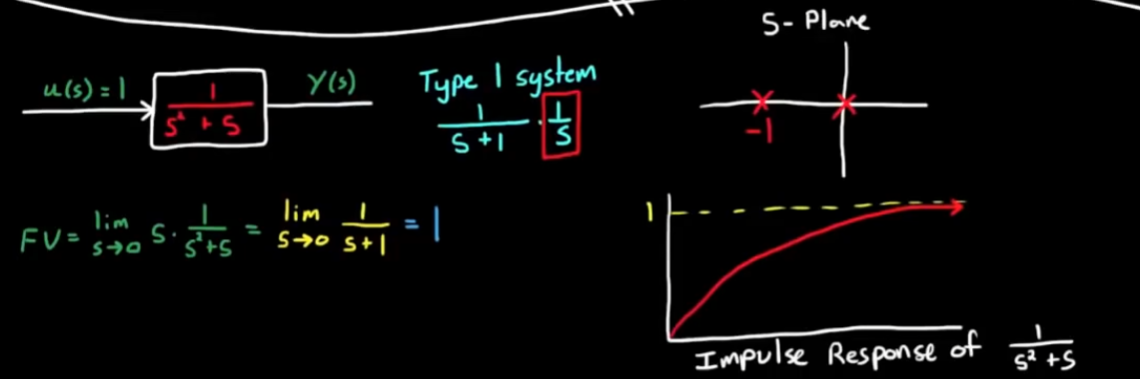 S-Plane
u(s) = 1
1
s² + s
Y(s)
Type 1 system
1/(s+1) · 1/s
-1
FV = lim s→0 s · 1/(s²+s) = lim s→0 1/(s+1) = 1
1
Impulse Response of 1/(s² + s)